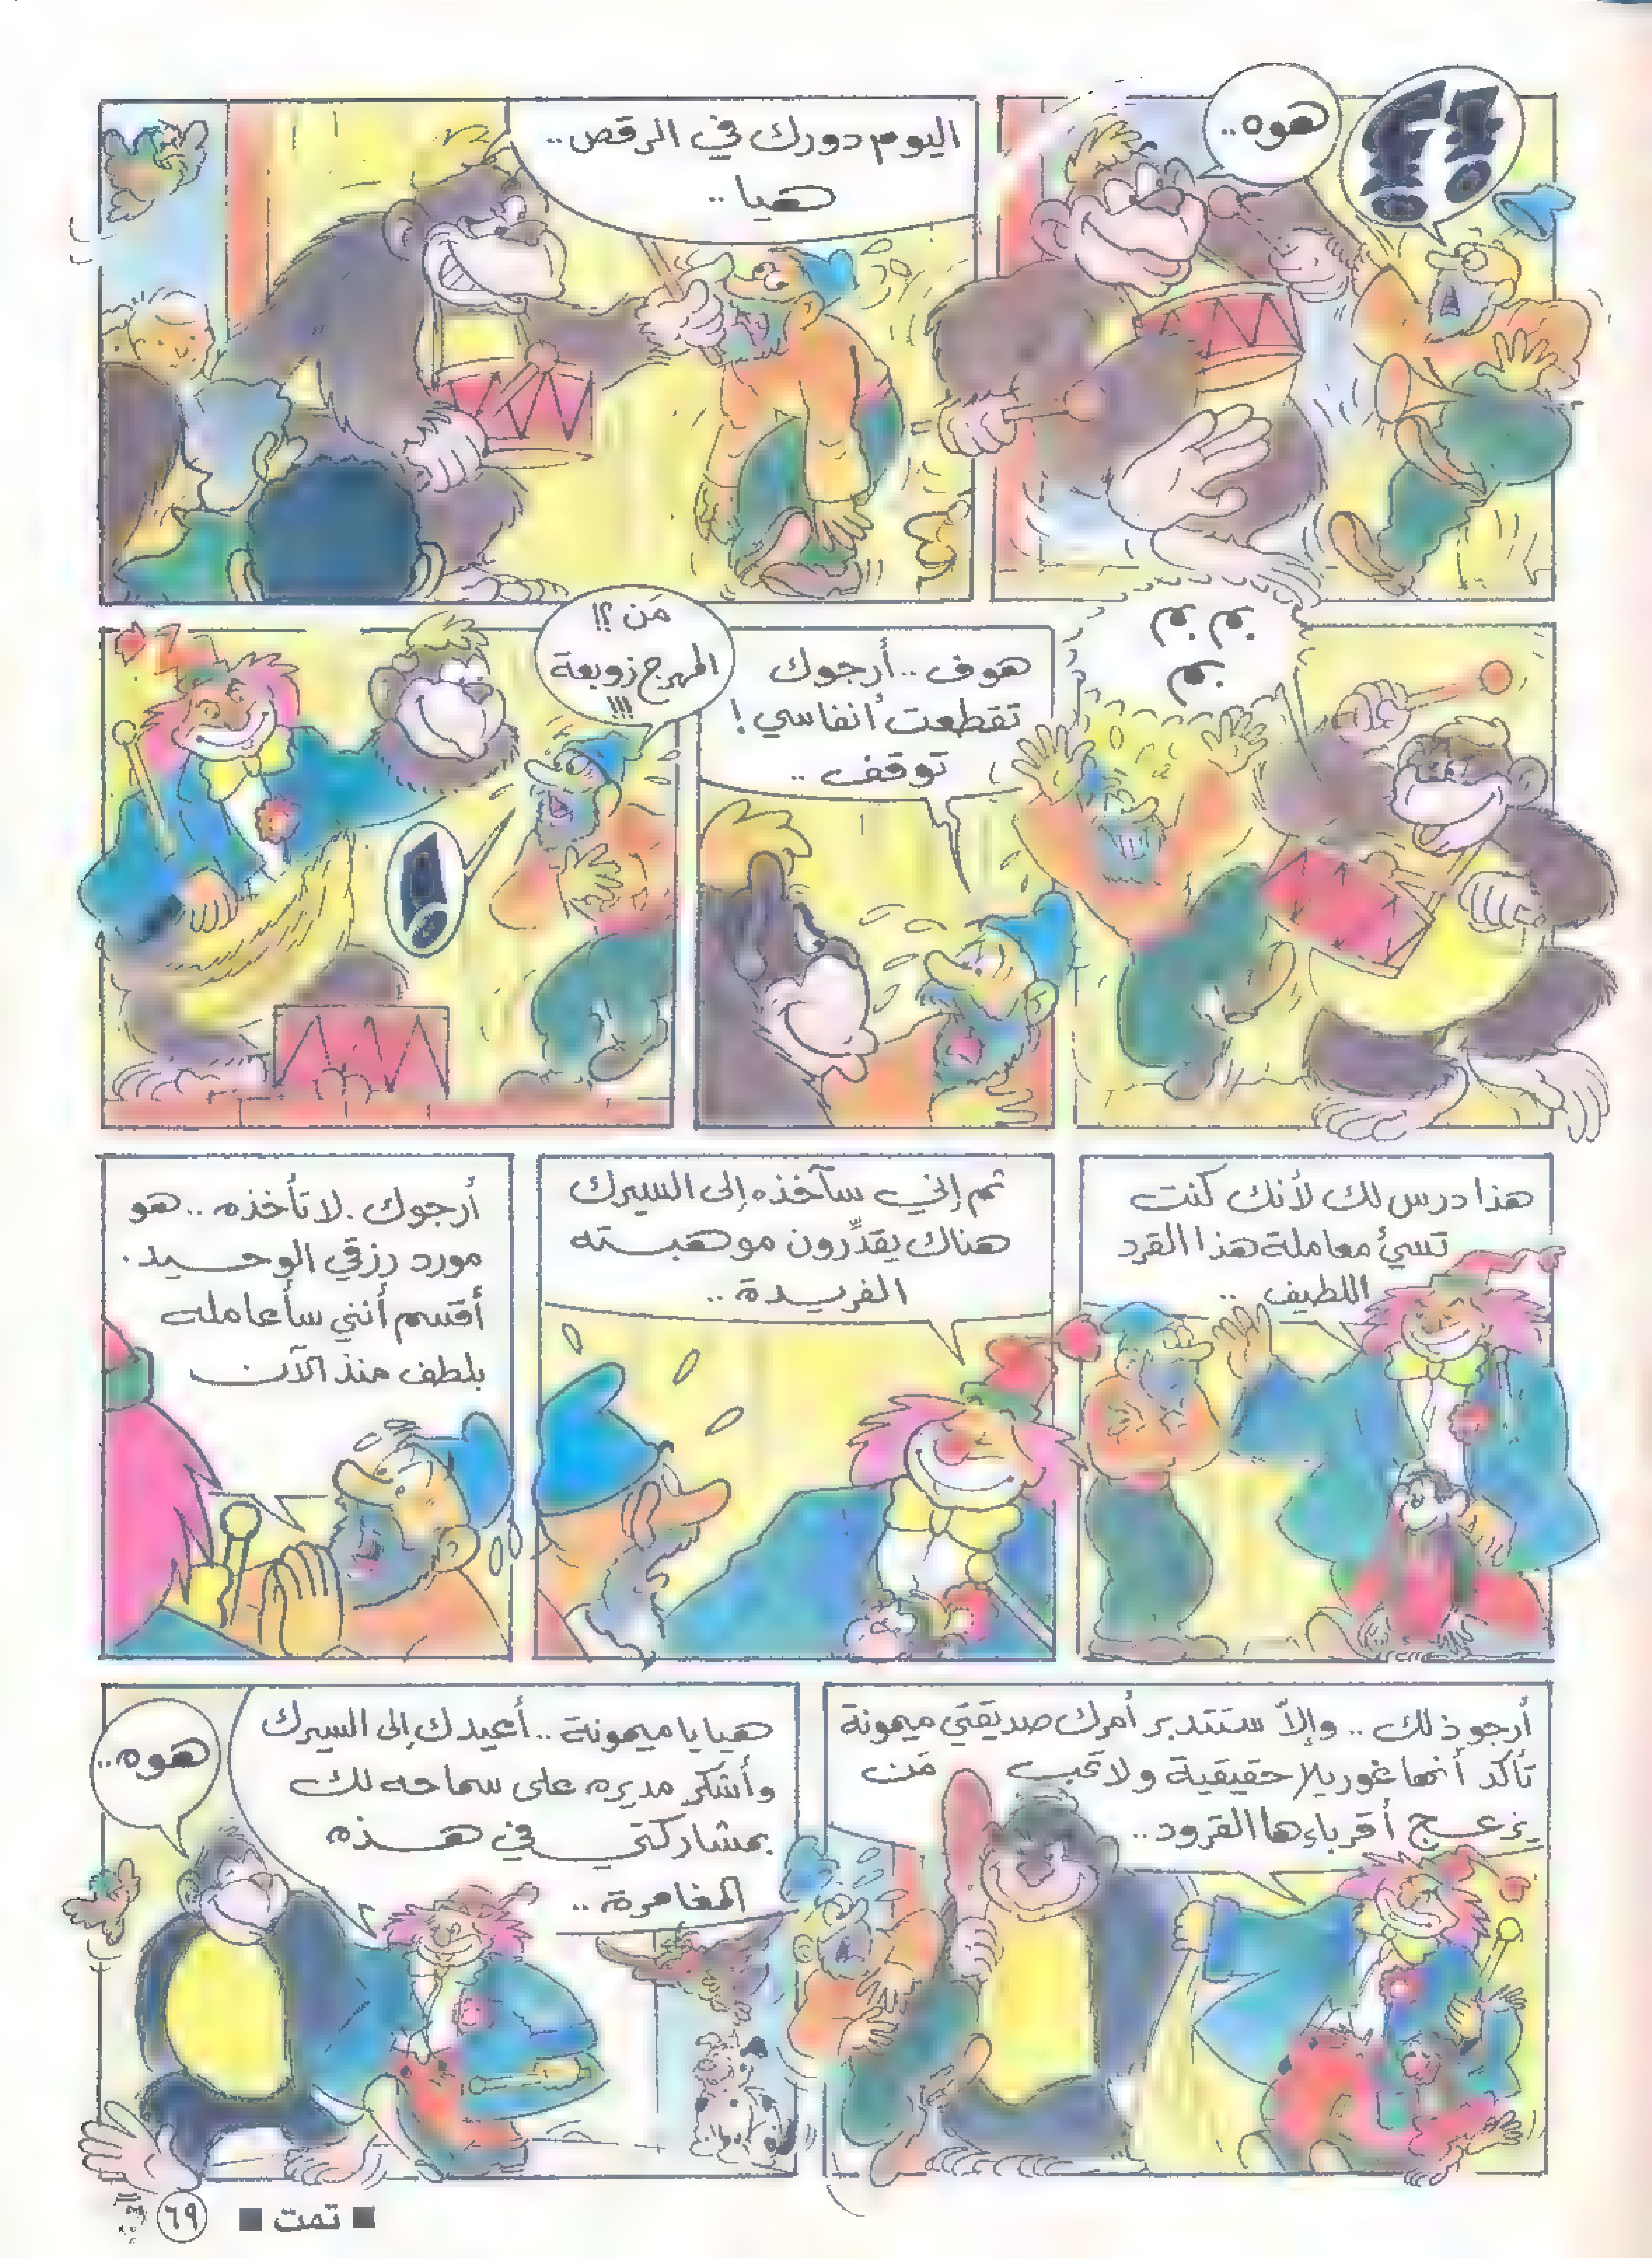 ؟!
هوه..
اليوم دورك في الرقص..
هيا..
بم بم
بم
هوف..أرجوك
تقطعت أنفاسي!
توقف..
!
مَن؟!
المهرج زوبعة
!!!
هذا درس لك لأنك كنت
تسئ معاملة هذا القرد
اللطيف..
ثم إني سآخذه إلى السيرك
هناك يقدِّرون موهبته
الفريدة..
أرجوك. لا تأخذه..هو
مورد رزقي الوحيد.
أقسم أنني سأعامله
بلطف منذ الآن
أرجو ذلك.. وإلاّ ستتدبر أمرك صديقتي ميمونة
تأكد أنها غوريلا حقيقية ولا تحب مَن
يزعج أقرباءها القرود..
هيا يا ميمونة..أعيدك إلى السيرك
وأشكر مديره على سماحه لك
بمشاركتي في هذه
المغامرة..
هوه..
■ تمت ■
٦٩